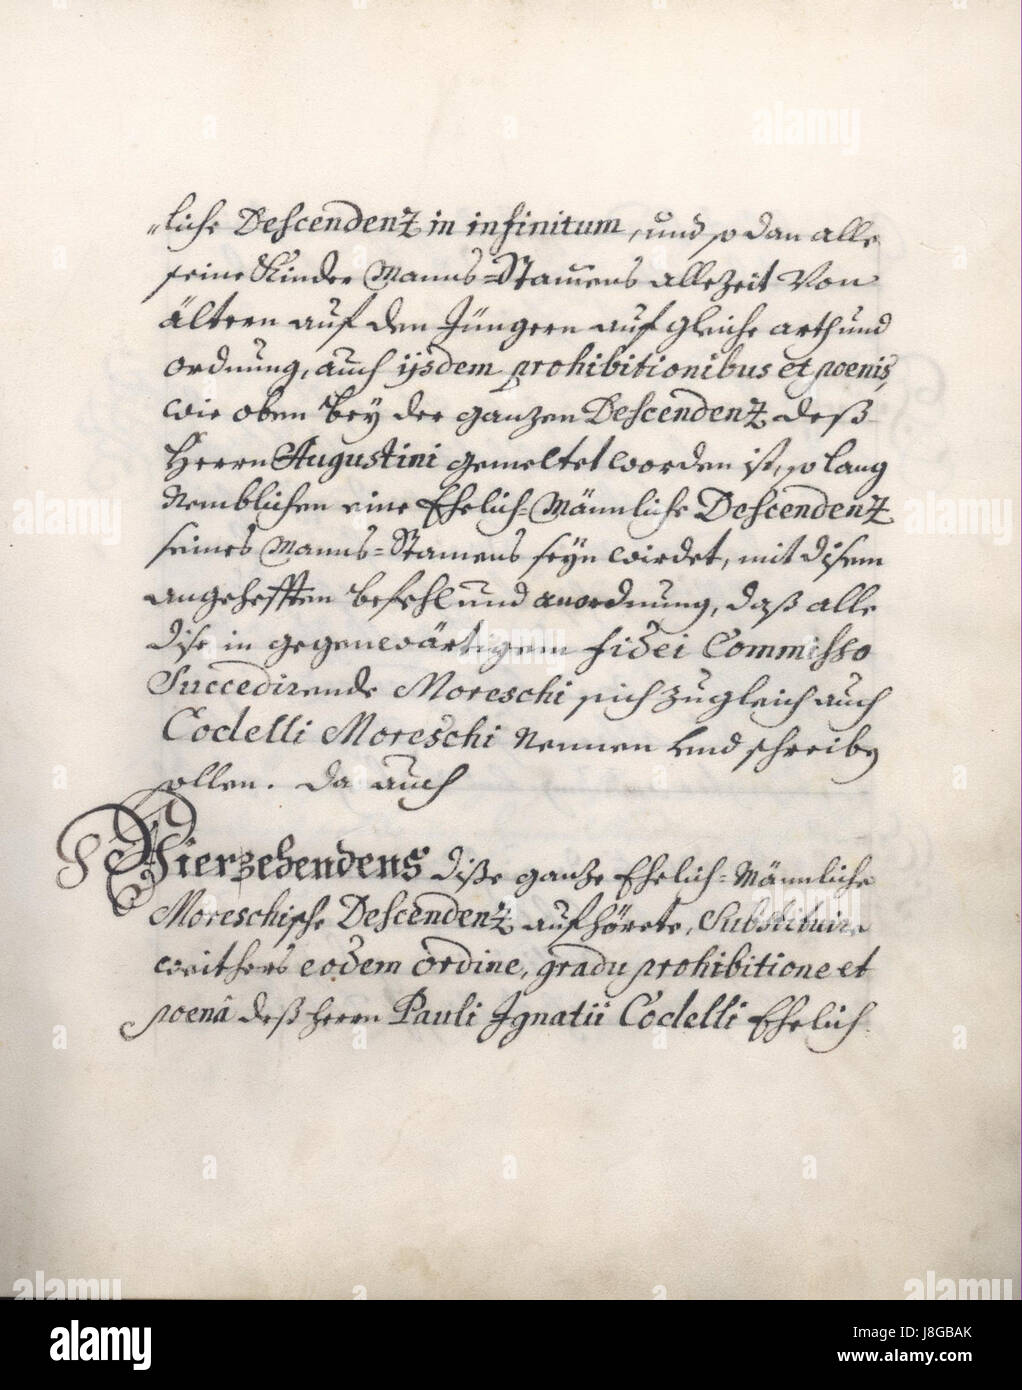 "liche Descendenz in infinitum, und so dan alle
seine Kinder Manns=Stammens allezeit Von
ältern auf den Jüngern auf gleiche arth und
ordnung, auch ijsdem prohibitionibus et poenis,
wie oben bey der ganzen Descendenz deß
Herrn Augustini gemeltet worden ist, so lang
Nemblichen eine Ehelich=Männliche Descendenz
seines Manns=Stamens seyn wirdet, mit disem
angehefften befehl und anordnung, daß alle
dise in gegenwärtigem fidei Commisso
Succedirende Moreschi sich zugleich auch
Codelli Moreschi Nennen und schreiben
sollen. Da auch
Vierzehendens diße ganze Ehelich=Männliche
Moreschische Descendenz aufhörete, Substituire
weithers eodem ordine, gradu prohibitione et
poenâ deß Herrn Pauli Ignatii Codelli Ehelich
alamy
J8GBAK
www.alamy.com